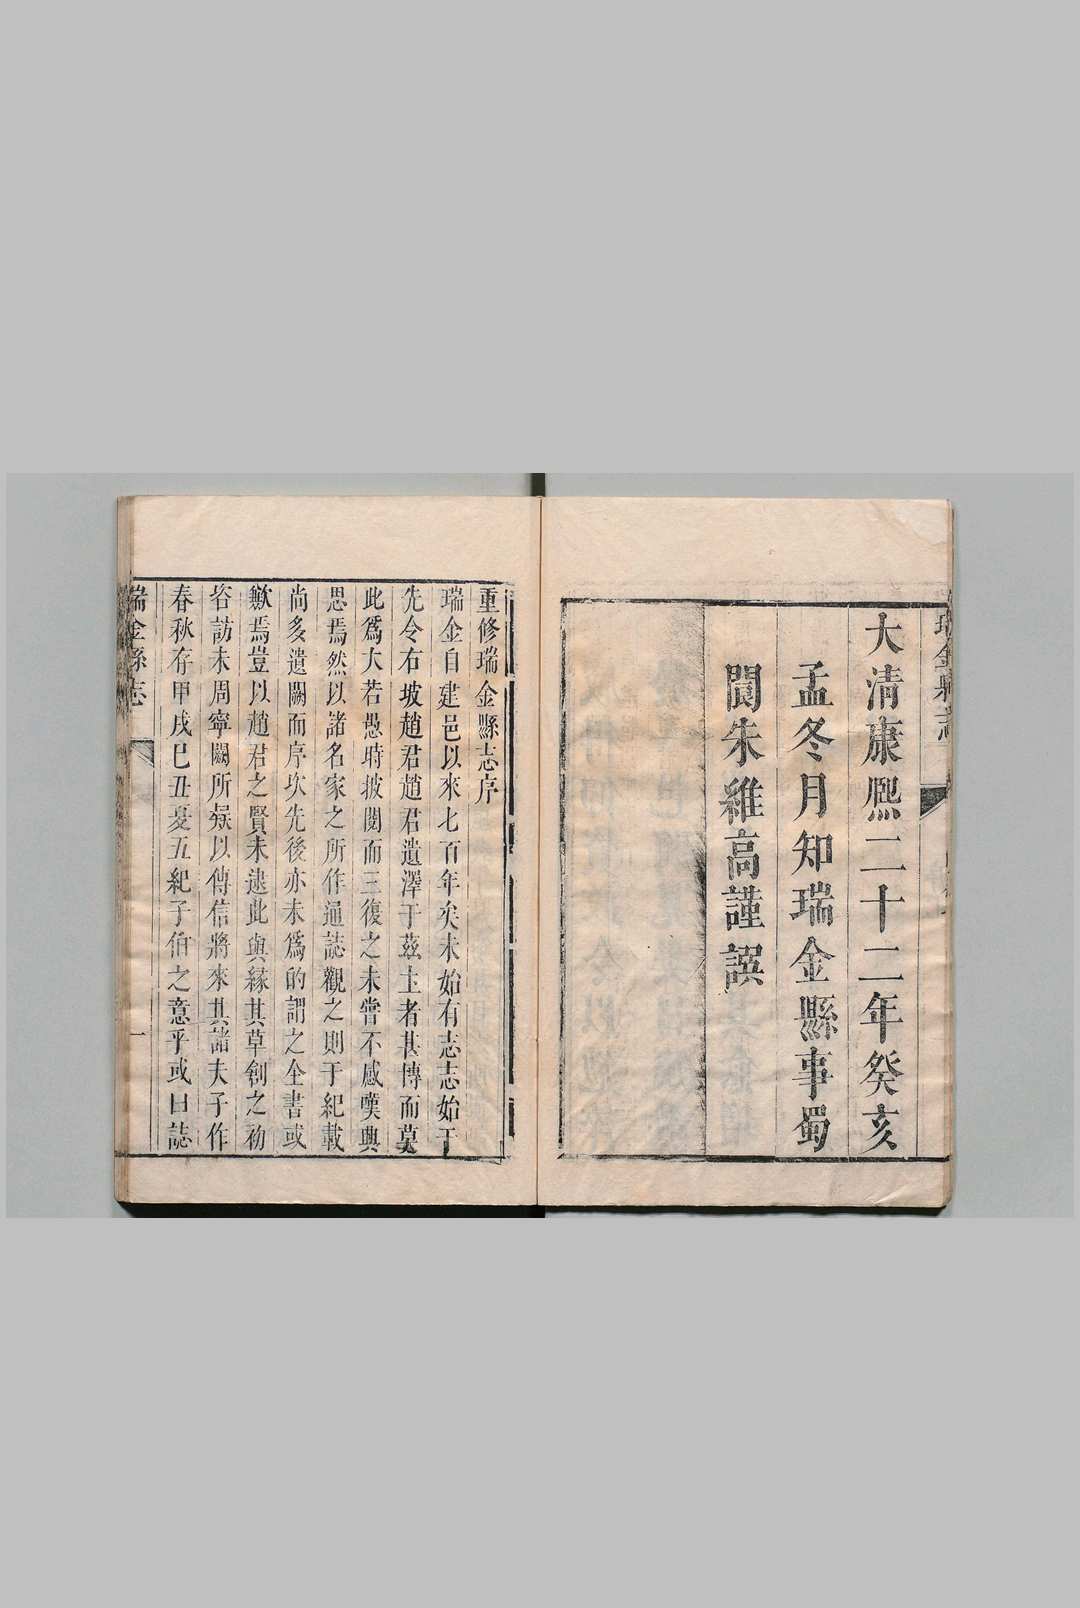 大清康熈二十二年癸亥
孟冬月知瑞金縣事蜀
閬朱維高謹譔
重修瑞金縣志序
瑞金自建邑以來七百年矣未始有志志始于
先令右坡趙君趙君遺澤于茲土者甚博而莫
此爲大若愚時披閱而三復之未嘗不感嘆興
思焉然以諸名家之所作通誌觀之則于紀載
尚多遺闕而序次先後亦未爲的謂之全書或
歉焉豈以趙君之賢未逮此與緣其草創之初
咨訪未周寧闕所疑以傳信將來其諸夫子作
春秋存甲戌巳丑夏五紀子伯之意乎或曰誌
瑞金縣志
一